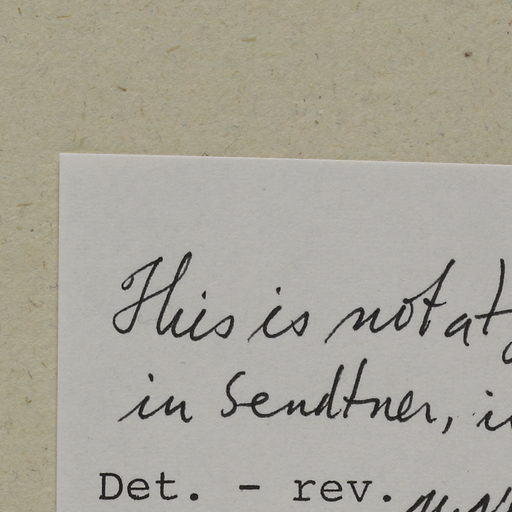 This is not a
in Sendtner,
Det. - rev.